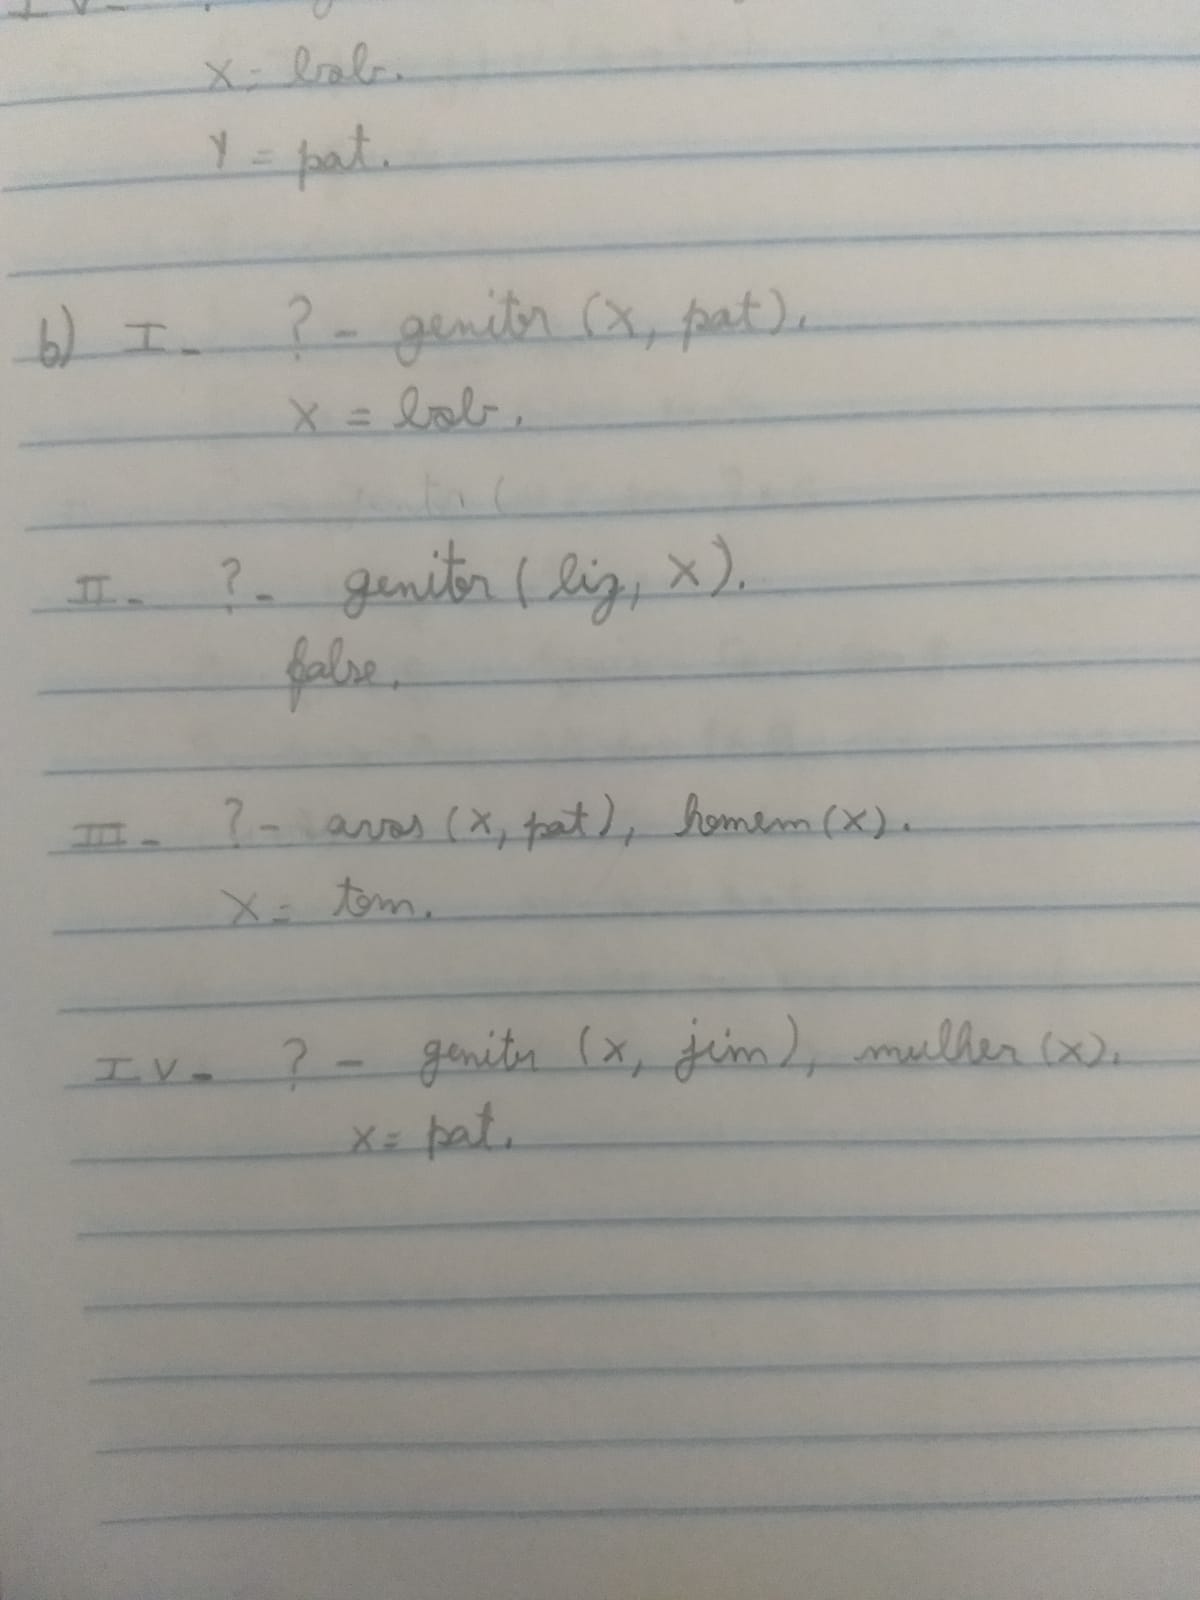 X = bob.
Y = pat.
b) I - ? - genitor (x, pat).
X = bob.
II - ? - genitor (liz, x).
false.
III - ? - avos (x, pat), homem (x).
X = tom.
IV - ? - genitor (x, jim), mulher (x).
x = pat.